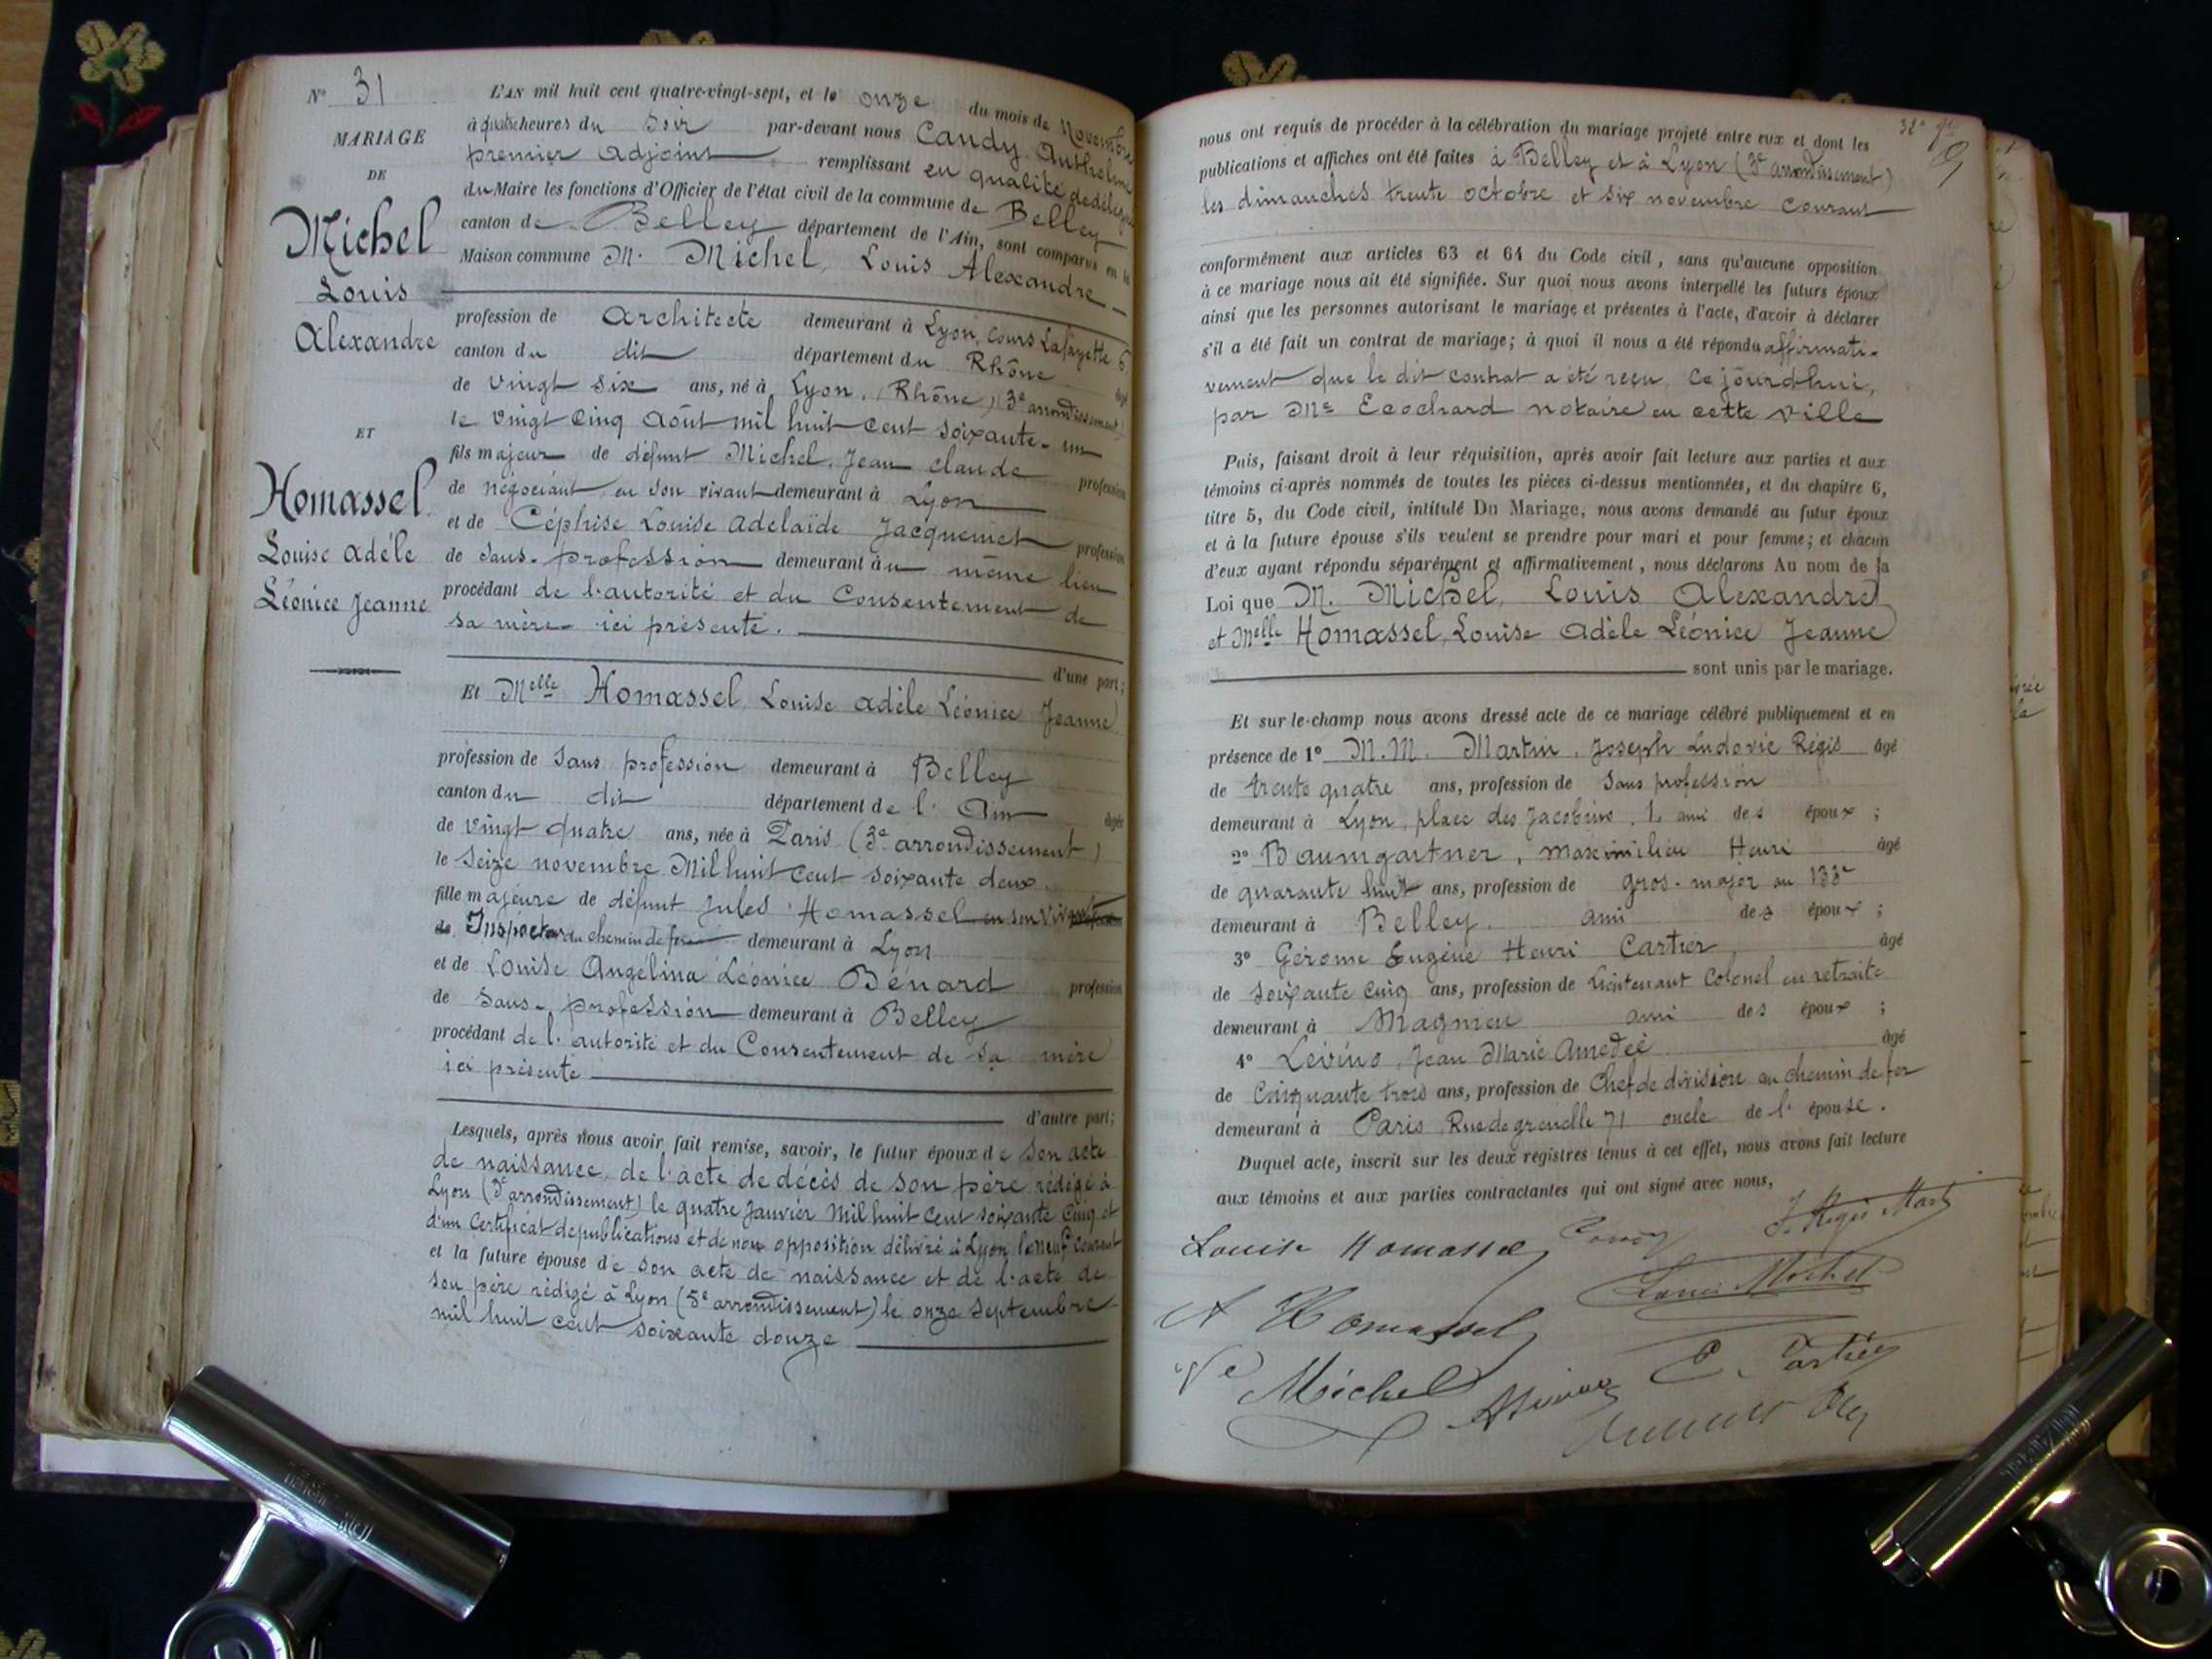 N° 31
MARIAGE
DE
Michel
Louis
Alexandre
ET
Homassel
Louise Adèle
Léonice Jeanne
L'AN mil huit cent quatre-vingt-sept, et le onze du mois de Novembre
à quatre heures du Soir par-devant nous Candy Anthelme
premier adjoint remplissant en qualité de délégué
du Maire les fonctions d'Officier de l'état civil de la commune de Belley
canton de Belley département de l'Ain, sont comparus en la
Maison commune M. Michel, Louis Alexandre
profession de Architecte demeurant à Lyon, Cours Lafayette 6
canton du dit département du Rhône âgé
de vingt six ans, né à Lyon, (Rhône) (3e arrondissement)
le vingt cinq Août mil huit cent soixante-un
fils majeur de défunt Michel, Jean Claude profession
de négociant en son vivant demeurant à Lyon
et de Céphise Louise Adelaïde Jacquemet profession
de sans-profession demeurant au même lieu
procédant de l'autorité et du Consentement de
sa mère ici présente.
d'une part;
Et Melle Homassel, Louise Adèle Léonice Jeanne
profession de Sans profession demeurant à Belley
canton du dit département de l'Ain âgée
de vingt quatre ans, née à Paris (3e arrondissement)
le Seize novembre Mil huit cent soixante deux
fille majeure de défunt Jules Homassel en son vivant profession
de Inspecteur du chemin de fer demeurant à Lyon
et de Louise Angelina Léonice Bénard profession
de Sans-profession demeurant à Belley
procédant de l'autorité et du Consentement de sa mère
ici présente
d'autre part;
Lesquels, après nous avoir fait remise, savoir, le futur époux de Son acte
de naissance, de l'acte de décès de son père rédigé à
Lyon (3e arrondissement) le quatre Janvier Mil huit cent soixante cinq et
d'un Certificat de publications et de non opposition délivré à Lyon le neuf courant
et la future épouse de son acte de naissance et de l'acte de
son père rédigé à Lyon (5e arrondissement) le onze Septembre
mil huit cent soixante douze
nous ont requis de procéder à la célébration du mariage projeté entre eux et dont les
publications et affiches ont été faites à Belley et à Lyon (3e arrondissement)
les dimanches trente octobre et six novembre courant
conformément aux articles 63 et 64 du Code civil, sans qu'aucune opposition
à ce mariage nous ait été signifiée. Sur quoi nous avons interpellé les futurs époux
ainsi que les personnes autorisant le mariage et présentes à l'acte, d'avoir à déclarer
s'il a été fait un contrat de mariage; à quoi il nous a été répondu affirmati-
vement que le dit contrat a été reçu, Ce jourd'hui,
par Me Ecochard notaire en cette ville
Puis, faisant droit à leur réquisition, après avoir fait lecture aux parties et aux
témoins ci-après nommés de toutes les pièces ci-dessus mentionnées, et du chapitre 6,
titre 5, du Code civil, intitulé Du Mariage, nous avons demandé au futur époux
et à la future épouse s'ils veulent se prendre pour mari et pour femme; et chacun
d'eux ayant répondu séparément et affirmativement, nous déclarons Au nom de la
Loi que M. Michel, Louis Alexandre
et Melle Homassel, Louise Adèle Léonice Jeanne
sont unis par le mariage.
Et sur-le-champ nous avons dressé acte de ce mariage célébré publiquement et en
présence de 1° M.M. Martin, Joseph Ludovic Régis âgé
de trente quatre ans, profession de Sans profession
demeurant à Lyon, place des Jacobins, 1, ami des époux;
2° Baumgartner, Maximilien Henri âgé
de quarante huit ans, profession de gros-major au 133e
demeurant à Belley ami des époux;
3° Gérome Eugène Henri Cartier âgé
de soixante cinq ans, profession de Lieutenant Colonel en retraite
demeurant à Magnieu ami des époux;
4° Lévino, Jean Marie Amedée âgé
de Cinquante trois ans, profession de Chef de division au chemin de fer
demeurant à Paris, Rue de grenelle 71 oncle de l'épouse.
Duquel acte, inscrit sur les deux registres tenus à cet effet, nous avons fait lecture
aux témoins et aux parties contractantes qui ont signé avec nous,
Louise Homassel Candy J. Régis Martin
A Homassel Louis Michel
Ve Michel E. Cartier